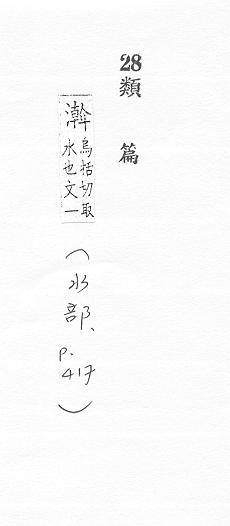 28
類篇
濣
烏括切取
水也文一
(水部、p.417)